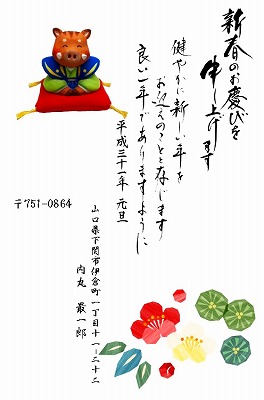 新春のお慶びを
申し上げます
健やかに新しい年を
お迎えのことと存じます
良い一年でありますように
平成三十一年 元旦
〒751-0864
山口県下関市伊倉町一丁目十一-二十二
内丸 最一郎